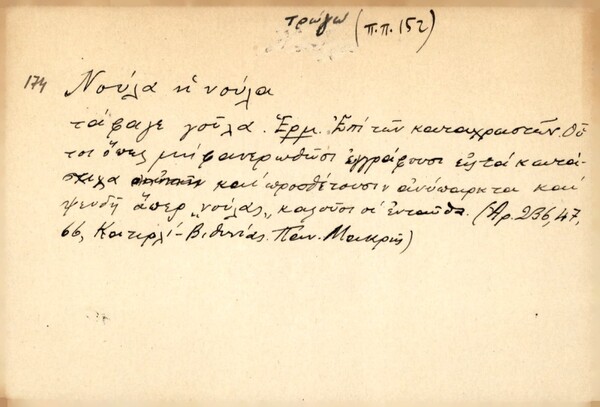 τρώγω (π.π. 152)
174 Νούλα κι νούλα
τάφαγε γούλα. Ἑρμ. Ἐπί τῶν καταχραστῶν. Οὗ
τοι ὅπως μή φανερωθῶσι ἐγγράφουσι εἰς τά κατά-
στιχα καί προσθέτουσιν ἀνύπαρκτα καί
ψευδῆ ἅπερ „νούλας„ καλοῦσι οἱ ἐνταῦθα. (Ἀρ. 236, 47,
66, Κατιρλί-Βιθυνίας. Παν. Μακρῆς)